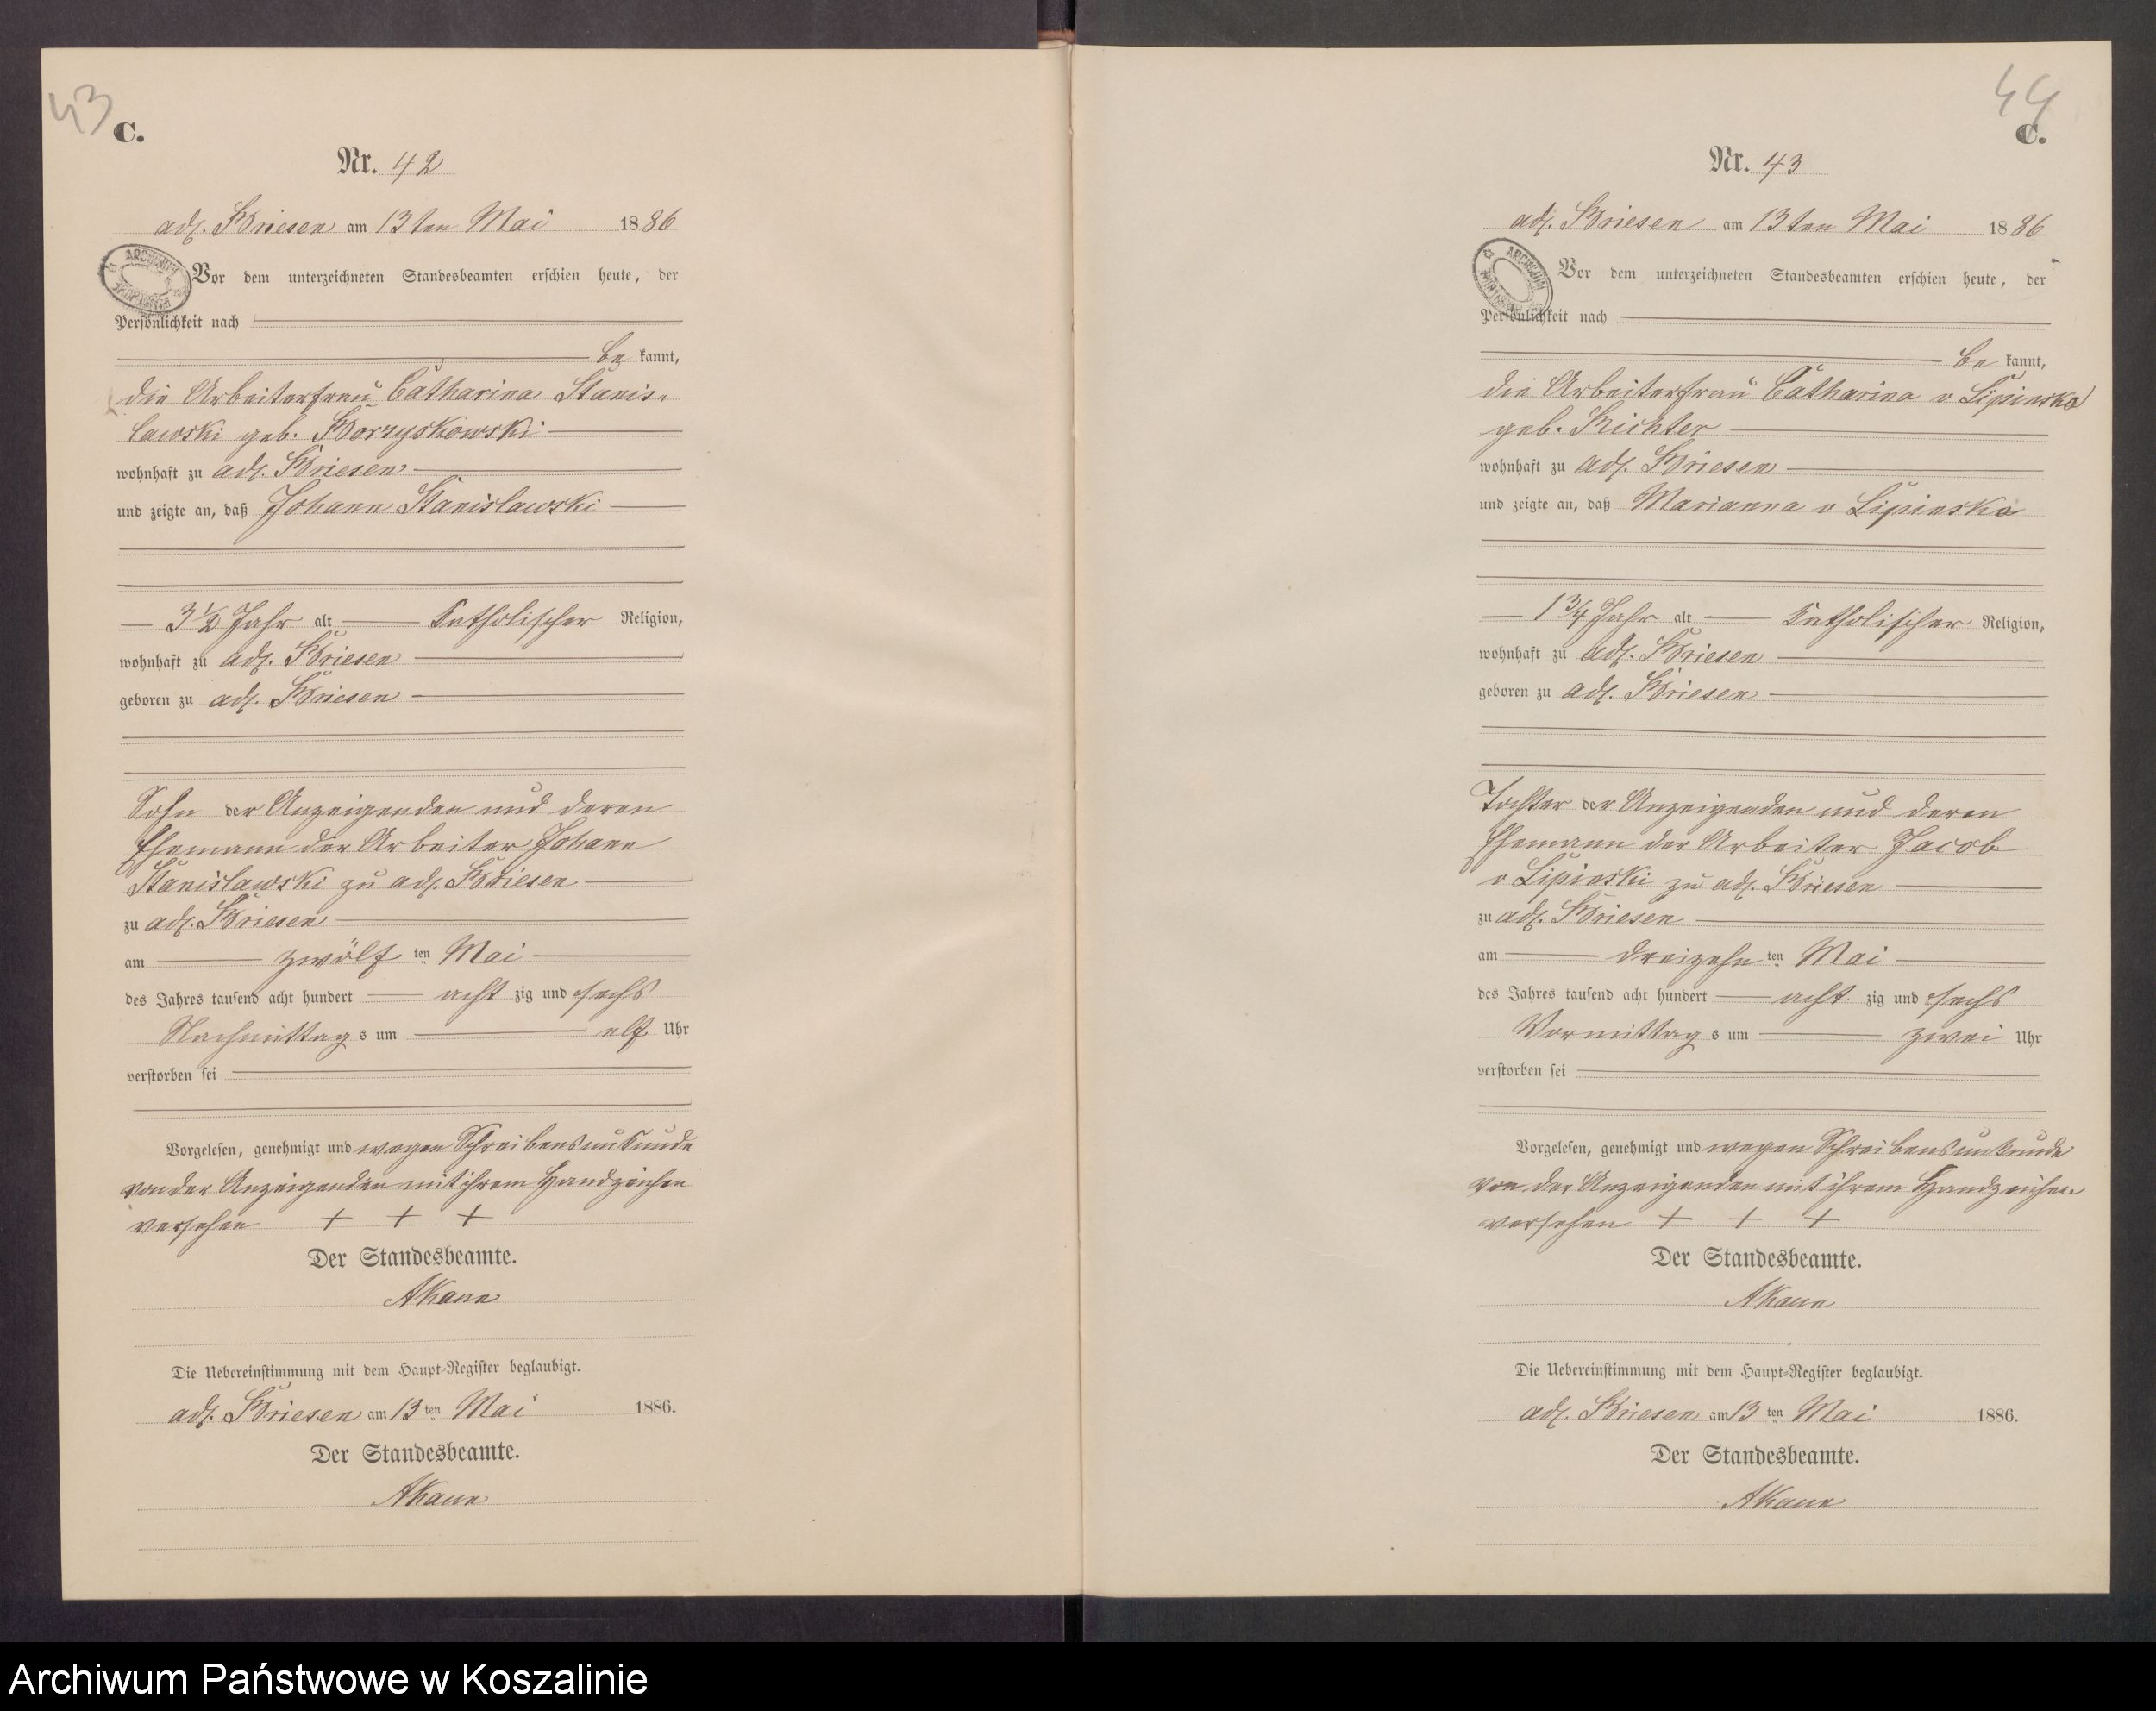 43
C.
Nr. 42
adl. Briesen am 13ten Mai 1886
Vor dem unterzeichneten Standesbeamten erschien heute, der
Persönlichkeit nach
be kannt,
die Arbeiterfrau Catharina Stanis-
lawski geb. Borzyskowski
wohnhaft zu adl. Briesen
und zeigte an, daß Johann Stanislawski
3 1/2 Jahr alt Katholischer Religion,
wohnhaft zu adl. Briesen
geboren zu adl. Briesen
Sohn der Anzeigenden und deren
Ehemann der Arbeiter Johann
Stanislawski zu adl. Briesen
zu adl. Briesen
am zwölf ten Mai
des Jahres tausend acht hundert acht zig und sechs
Nachmittag s um elf Uhr
verstorben sei
Vorgelesen, genehmigt und wegen Schreibensunkunde
von der Anzeigenden mit ihrem Handzeichen
versehen + + +
Der Standesbeamte.
AKaun
Die Uebereinstimmung mit dem Haupt-Register beglaubigt.
adl. Briesen am 13 ten Mai 1886.
Der Standesbeamte.
AKaun
44
C.
Nr. 43
adl. Briesen am 13ten Mai 1886
Vor dem unterzeichneten Standesbeamten erschien heute, der
Persönlichkeit nach
be kannt,
die Arbeiterfrau Catharina v Lipinska
geb. Richter
wohnhaft zu adl. Briesen
und zeigte an, daß Marianna v Lipinska
1 3/4 Jahr alt Katholischer Religion,
wohnhaft zu adl. Briesen
geboren zu adl. Briesen
Tochter der Anzeigenden und deren
Ehemann der Arbeiter Jacob
v Lipinski zu adl. Briesen
zu adl. Briesen
am dreizehn ten Mai
des Jahres tausend acht hundert acht zig und sechs
Vormittag s um zwei Uhr
verstorben sei
Vorgelesen, genehmigt und wegen Schreibensunkunde
von der Anzeigenden mit ihrem Handzeichen
versehen + + +
Der Standesbeamte.
AKaun
Die Uebereinstimmung mit dem Haupt-Register beglaubigt.
adl. Briesen am 13 ten Mai 1886.
Der Standesbeamte.
AKaun
Archiwum Państwowe w Koszalinie